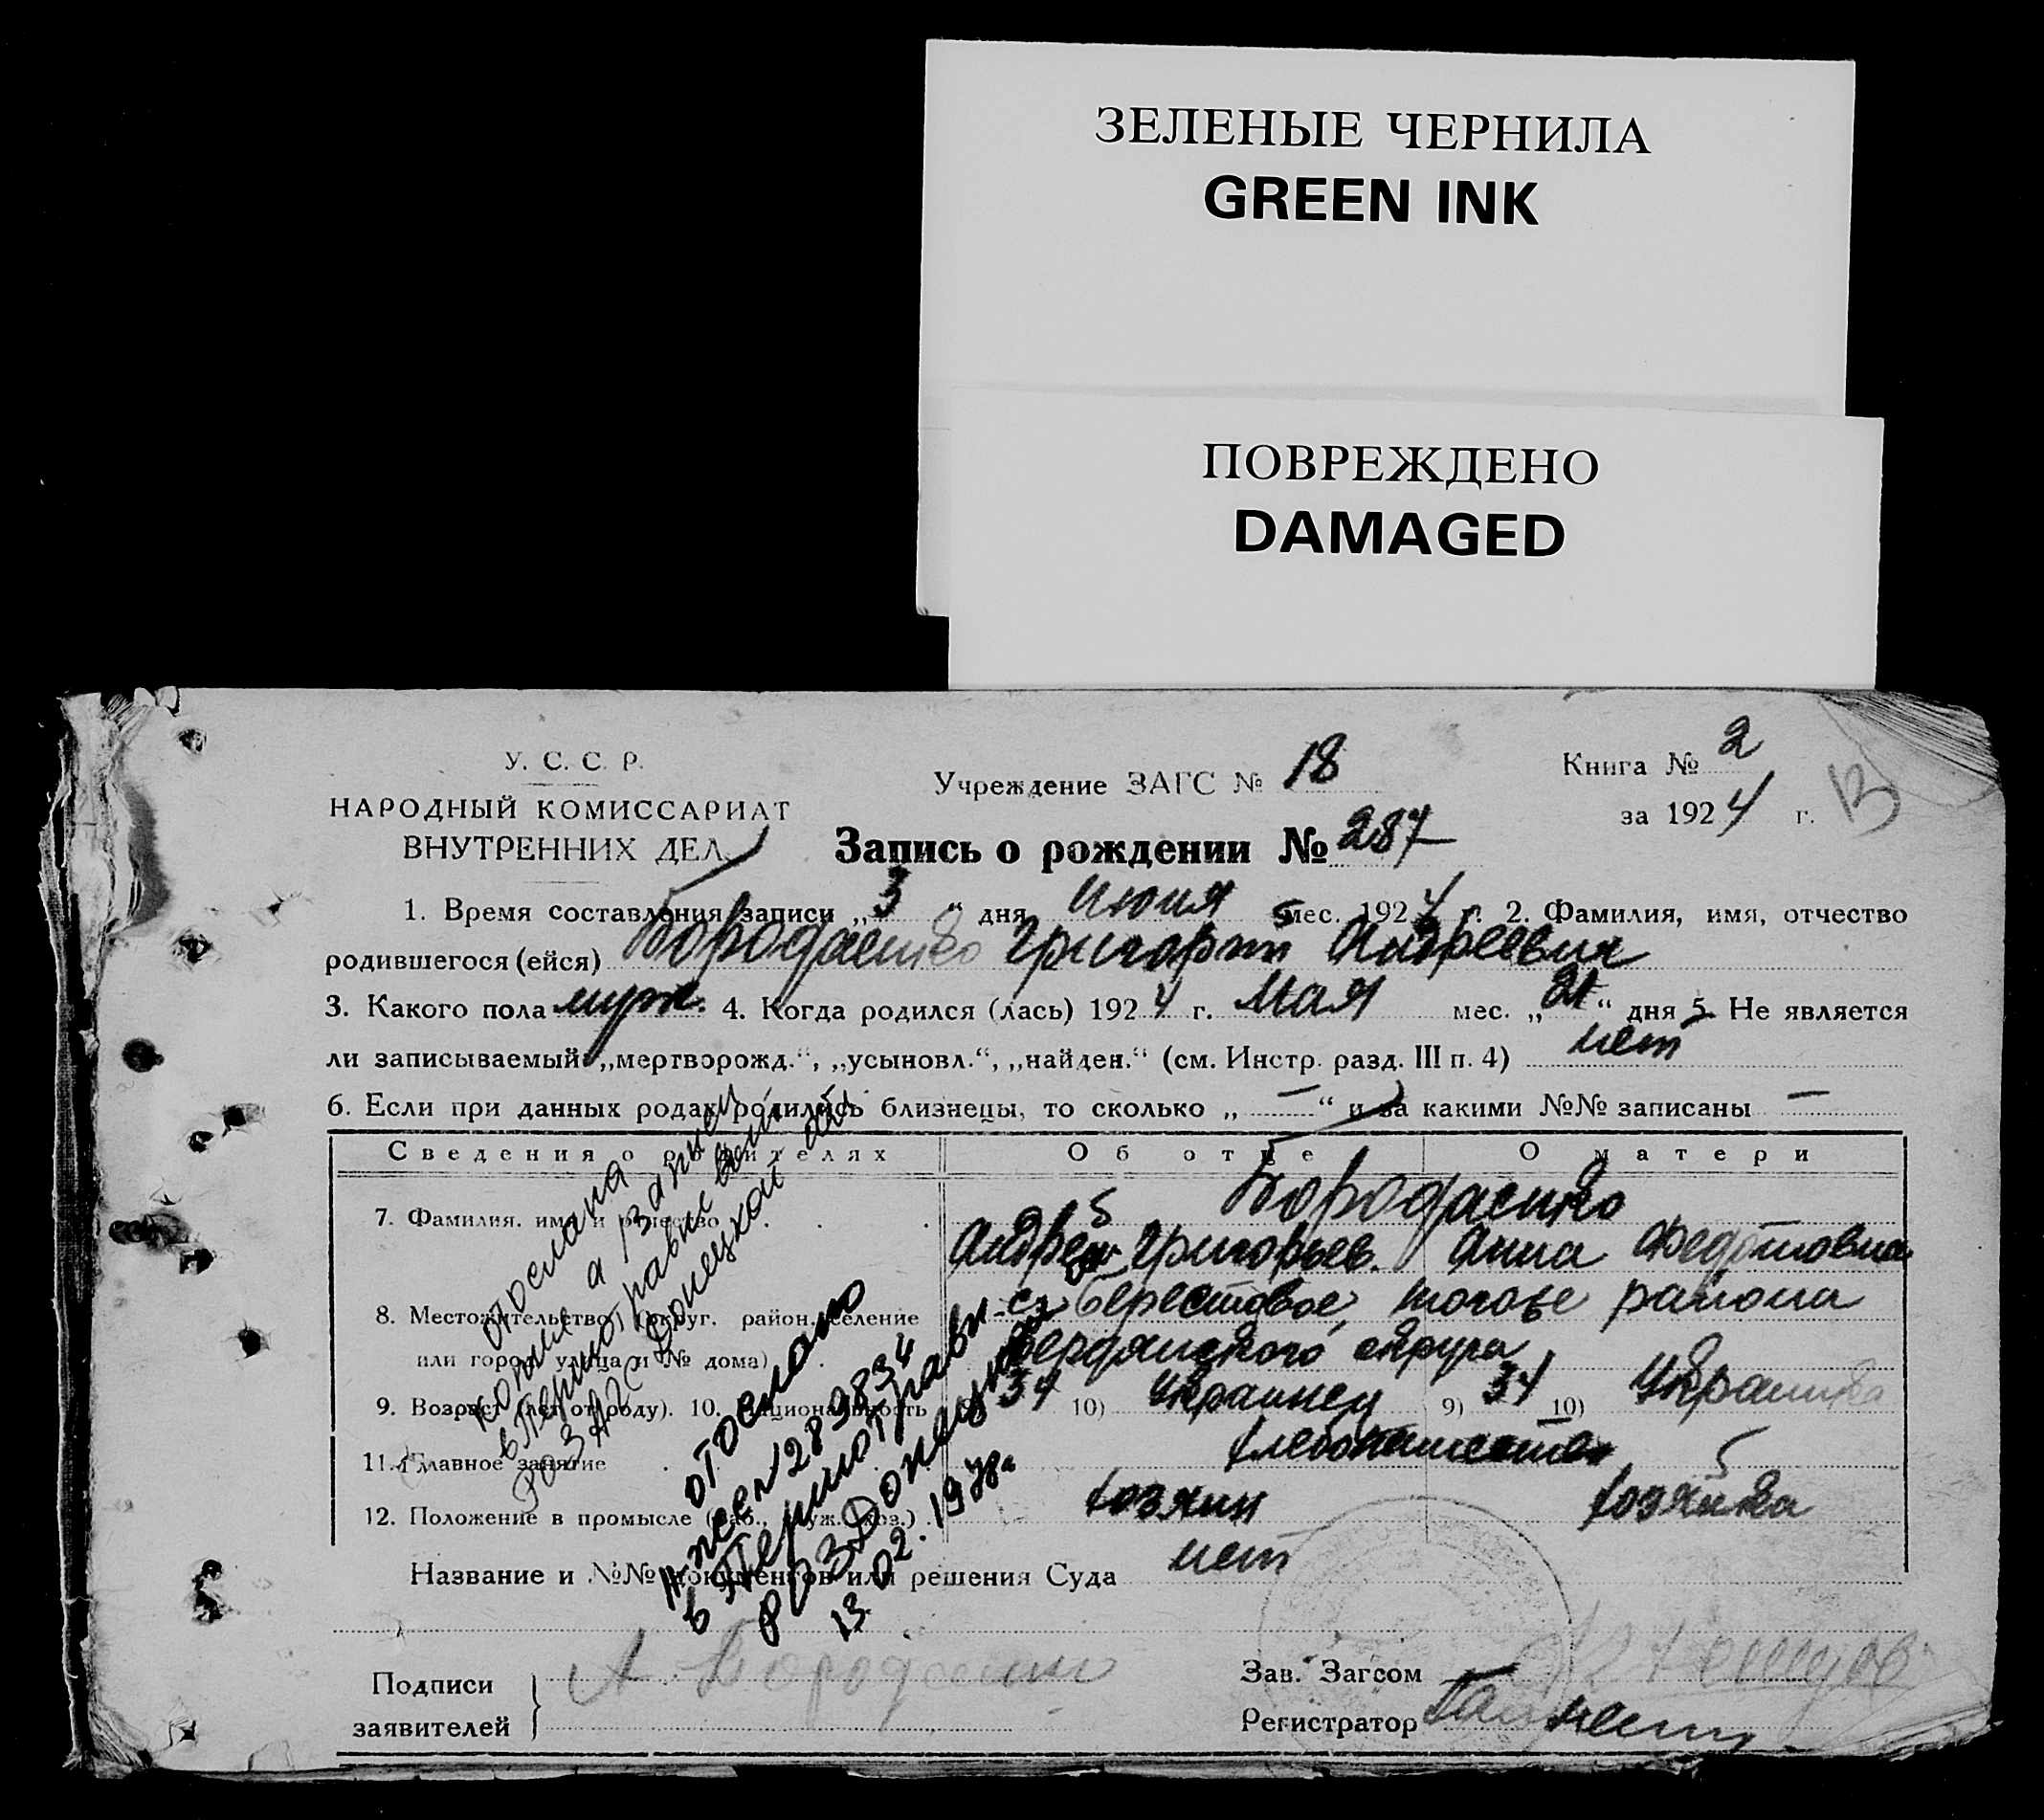 ЗЕЛЕНЫЕ ЧЕРНИЛА
GREEN INK
ПОВРЕЖДЕНО
DAMAGED
У. С. С. Р.
НАРОДНЫЙ КОМИССАРИАТ
ВНУТРЕННИХ ДЕЛ
Учреждение ЗАГС № 18
Книга № 2
за 1924 г.
Запись о рождении № 287
1. Время составления записи „3“ дня июня мес. 1924 г. 2. Фамилия, имя, отчество
родившегося (ейся) Григорий Андреевич
3. Какого пола муж. 4. Когда родился (лась) 1924 г. Мая мес. „21“ дня 5. Не является
ли записываемый: „мертворожд.“, „усыновл.“, „найден.“ (см. Инстр. разд. III п. 4) нет
6. Если при данных родах родились близнецы, то сколько „ — “ и за какими №№ записаны —
Сведения о родителях Об отце О матери
7. Фамилия, имя и отчество
Андрей Григорьев. Анна Федотовна
8. Местожительство (округ, район, селение с. Берестовое, того же района
или город, улица и № дома) Бердянского округа
9. Возраст (лет от роду). 10. Национальность 34 10) Украинец 9) 34 10) Украинка
11. Главное занятие
12. Положение в промысле (раб., служ., хоз.) хозяин хозяйка
Название и №№ документов или решения Суда нет
Подписи
заявителей
Зав. Загсом
Регистратор
отослана
копия а/записи
РОЗАГС Донецкой обл
отослано
289834
13.02.1978г